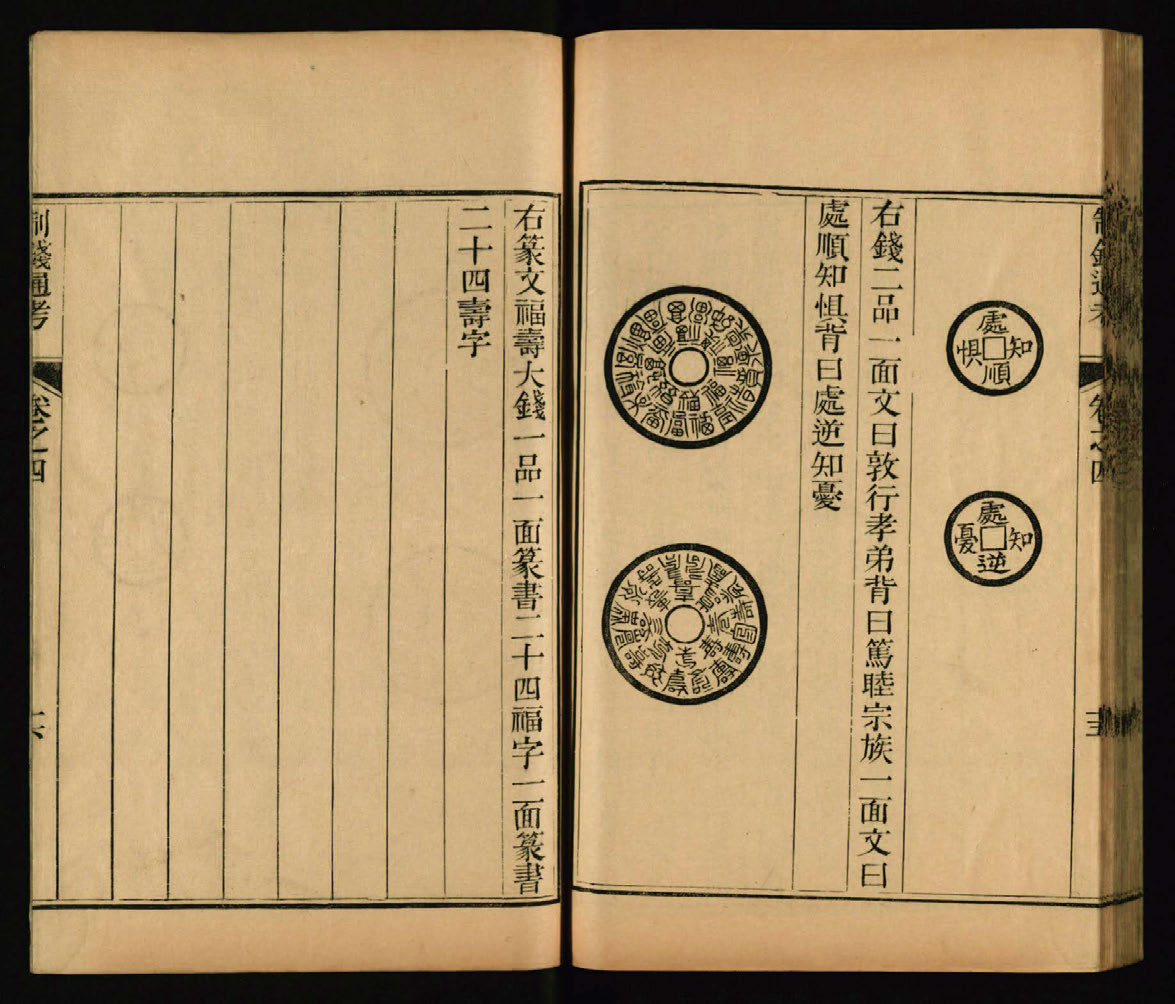 制錢通考
卷之四
處順知惧
處逆知憂
右錢二品一面文曰敦行孝弟背曰篤睦宗族一面文曰
處順知惧背曰處逆知憂
右篆文福壽大錢一品一面篆書二十四福字一面篆書
二十四壽字
制錢通考
卷之四